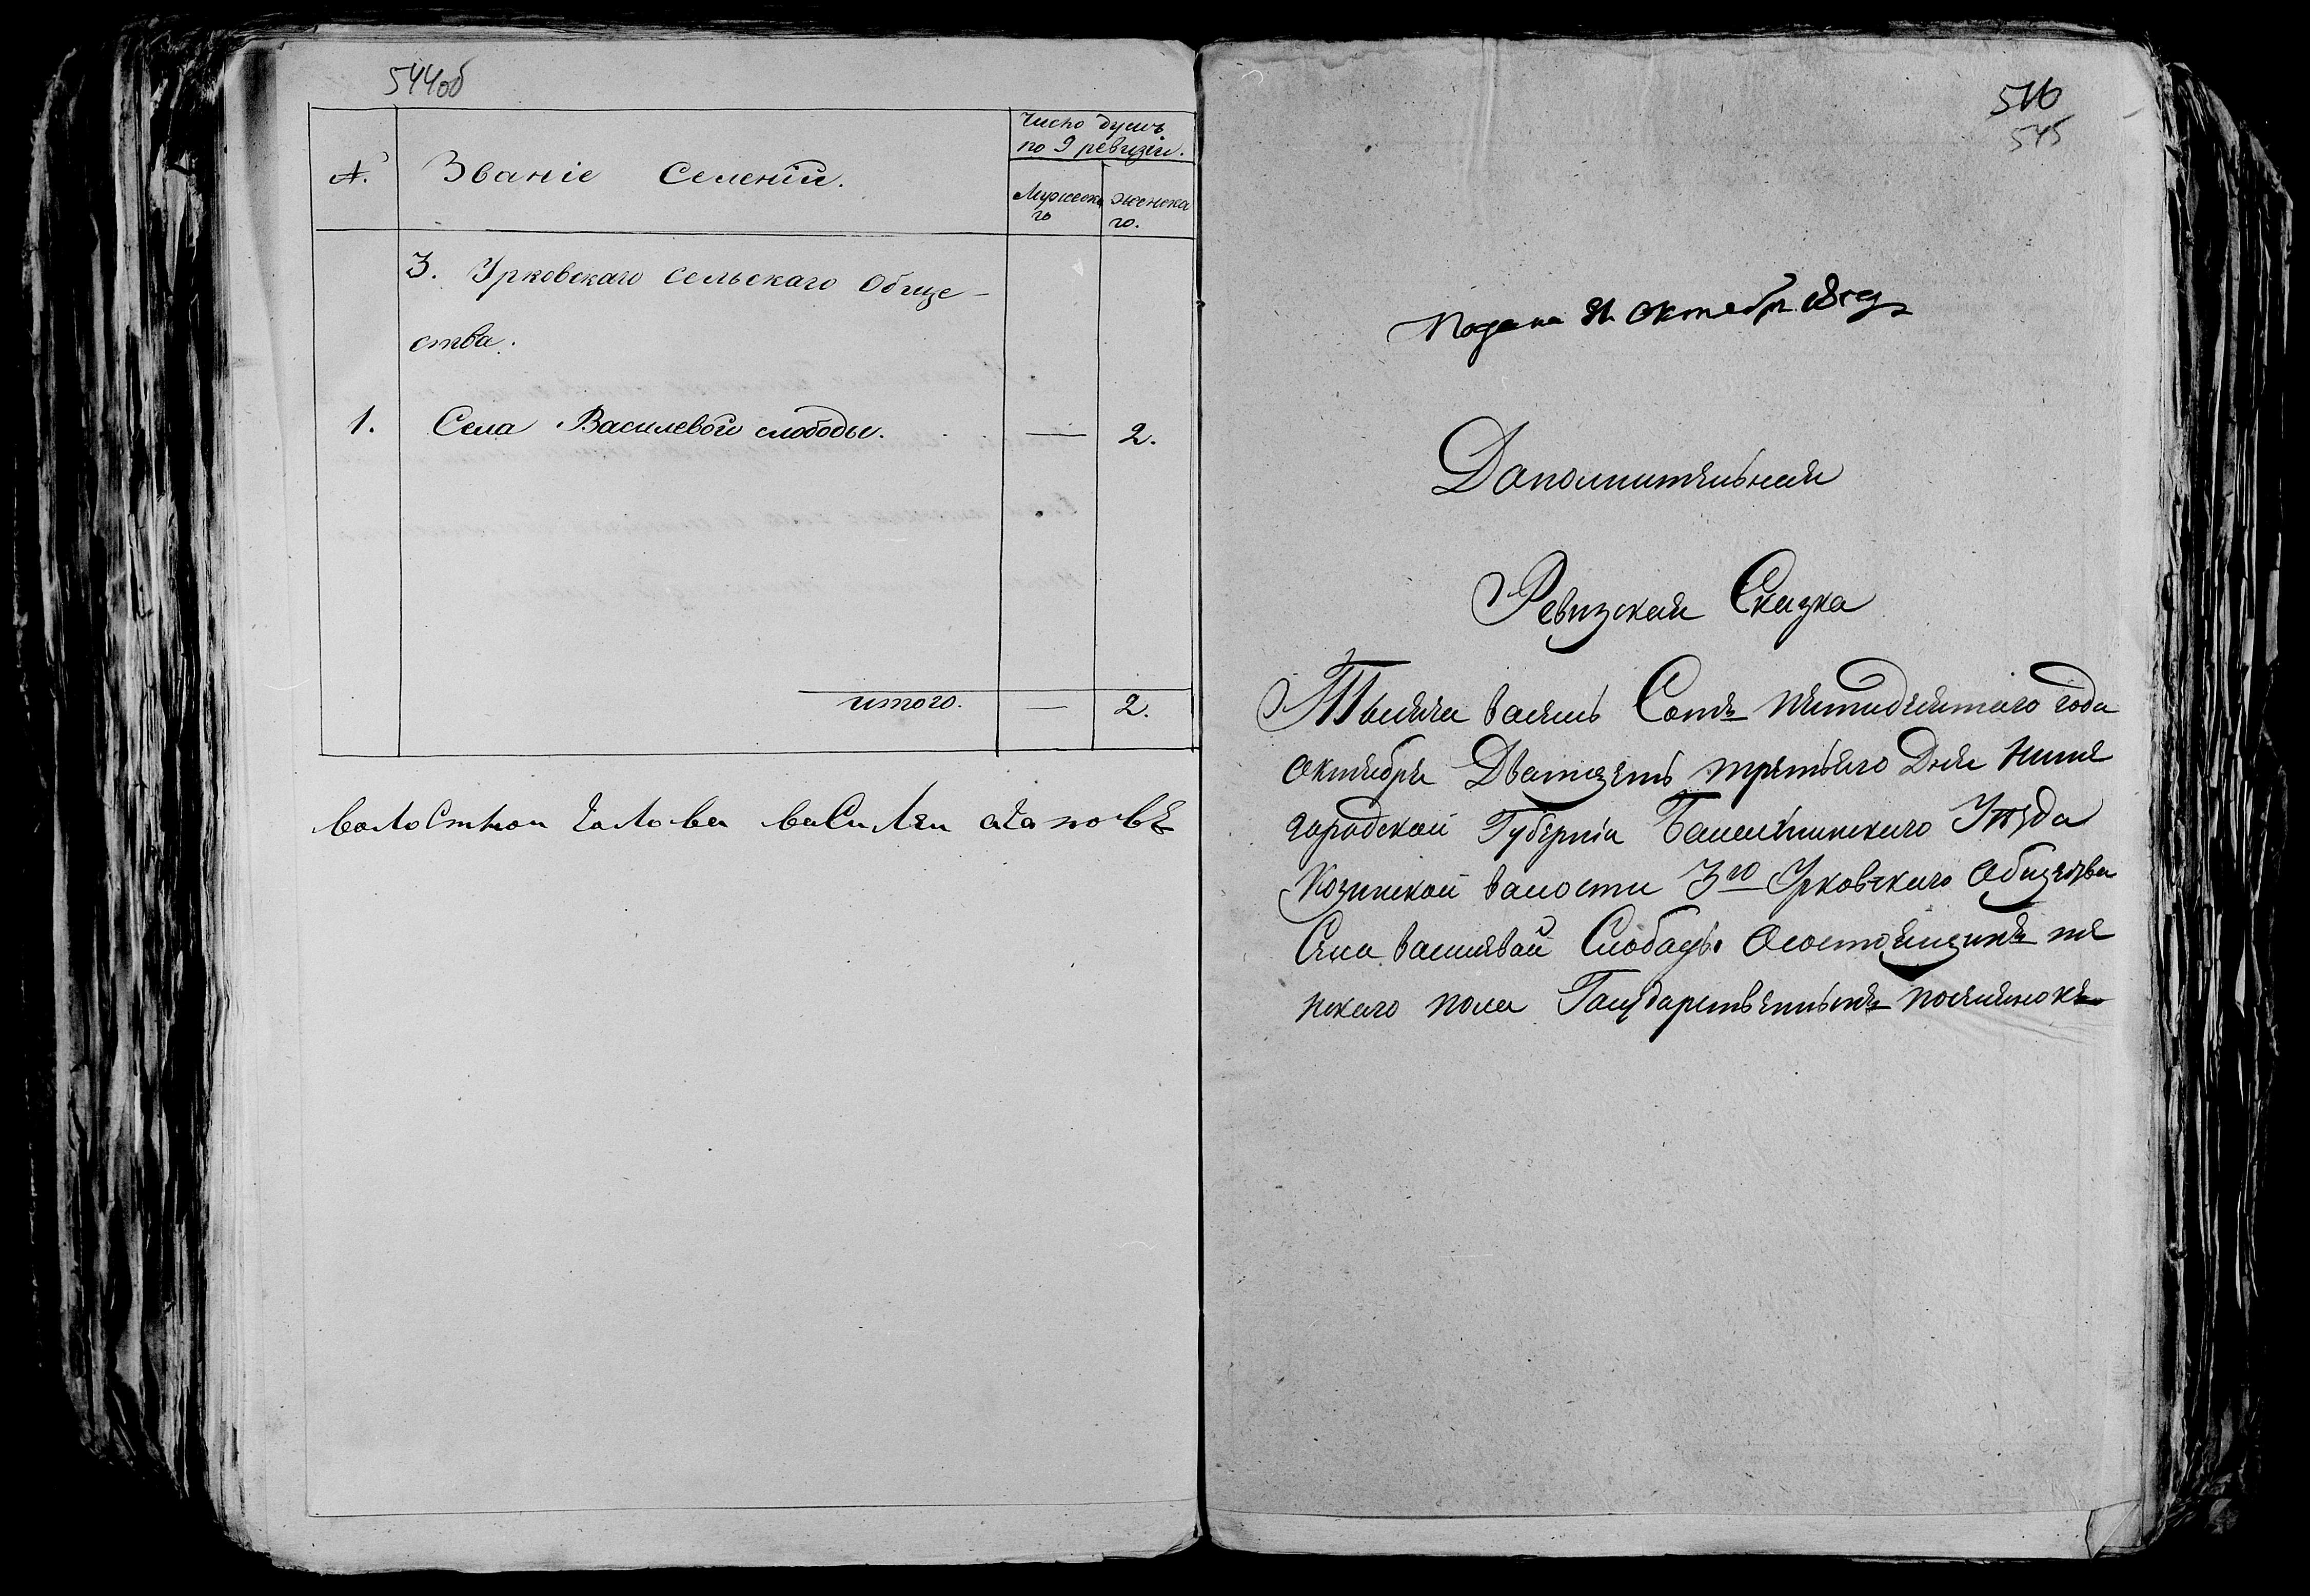 544об
№. Званіе Селеній. Число душъ по 9 ревизіи.
Мужеска го женска го.
3. Юрковскаго сельскаго обще-
ства.
1. Села Василевой слободы. — 2.
итого. — 2.
волостной голова василеи
516
545
Подана 31 октябр.
Дополнительная
Ревизская Сказка
Тысяча восемь Сотъ пятидесятаго года
октября Дватцеть третьяго Дня Ниже
городской Губерніи Балахнинскаго Уезда
Козинской волости 3го Юрковскаго Общества
Села василевой Слободы Осостоящихъ же
нскаго пола Государственныхъ поселянокъ